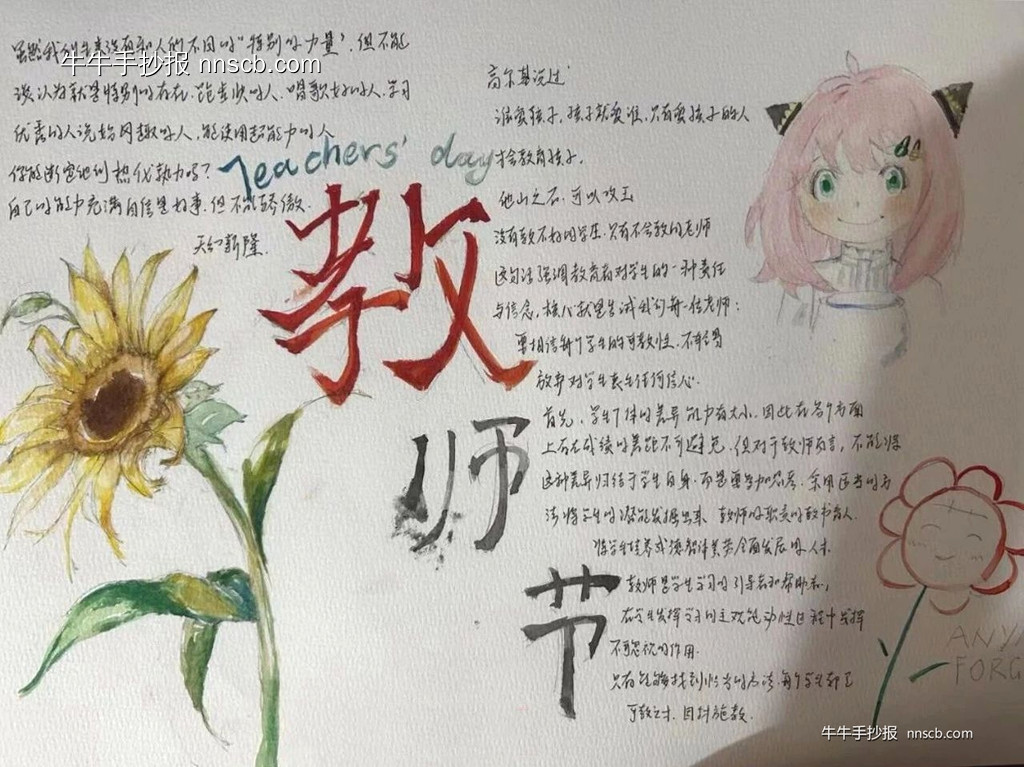 虽然我们生来没有和人们不同的“特别的力量”，但不能
牛牛手抄报 nnscb.com
误认为就是特别的存在.跑步快的人.唱歌好的人.学习
优秀的人说话风趣的人.能使用超能力的人
你能断定他们
自己的能力充满自信是好事.但不能骄傲.
Teachers' day
教
师
节
高尔基说过
谁爱孩子，孩子就爱谁，只有爱孩子的人
才会教育孩子.
他山之石，可以攻玉
没有教不好的学生.只有不会教的老师
这句话强调教育者对学生的一种责任
与信念，核心就是告诫我们每一位老师：
要相信每个学生的可教性，不轻易
放弃对学生表任何信心.
首先，学生个体的差异能力有大小，因此在各个方面
上存在成绩的差距不可避免，但对于教师而言，不能将
这种差异归结于学生自身.而是要多加思考.采用适当的方
法将学生的潜能发掘出来 教师的职责的教书育人.
将学生培养成德智体美劳全面发展的人才.
教师是学生学习的引导者和帮助者，
在学生发挥学习的主观能动性过程中发挥
不可忽视的作用.
只有能够找到恰当的方法.每个学生都是
可教之才.因材施教.
ANYA
FORG
牛牛手抄报 nnscb.com